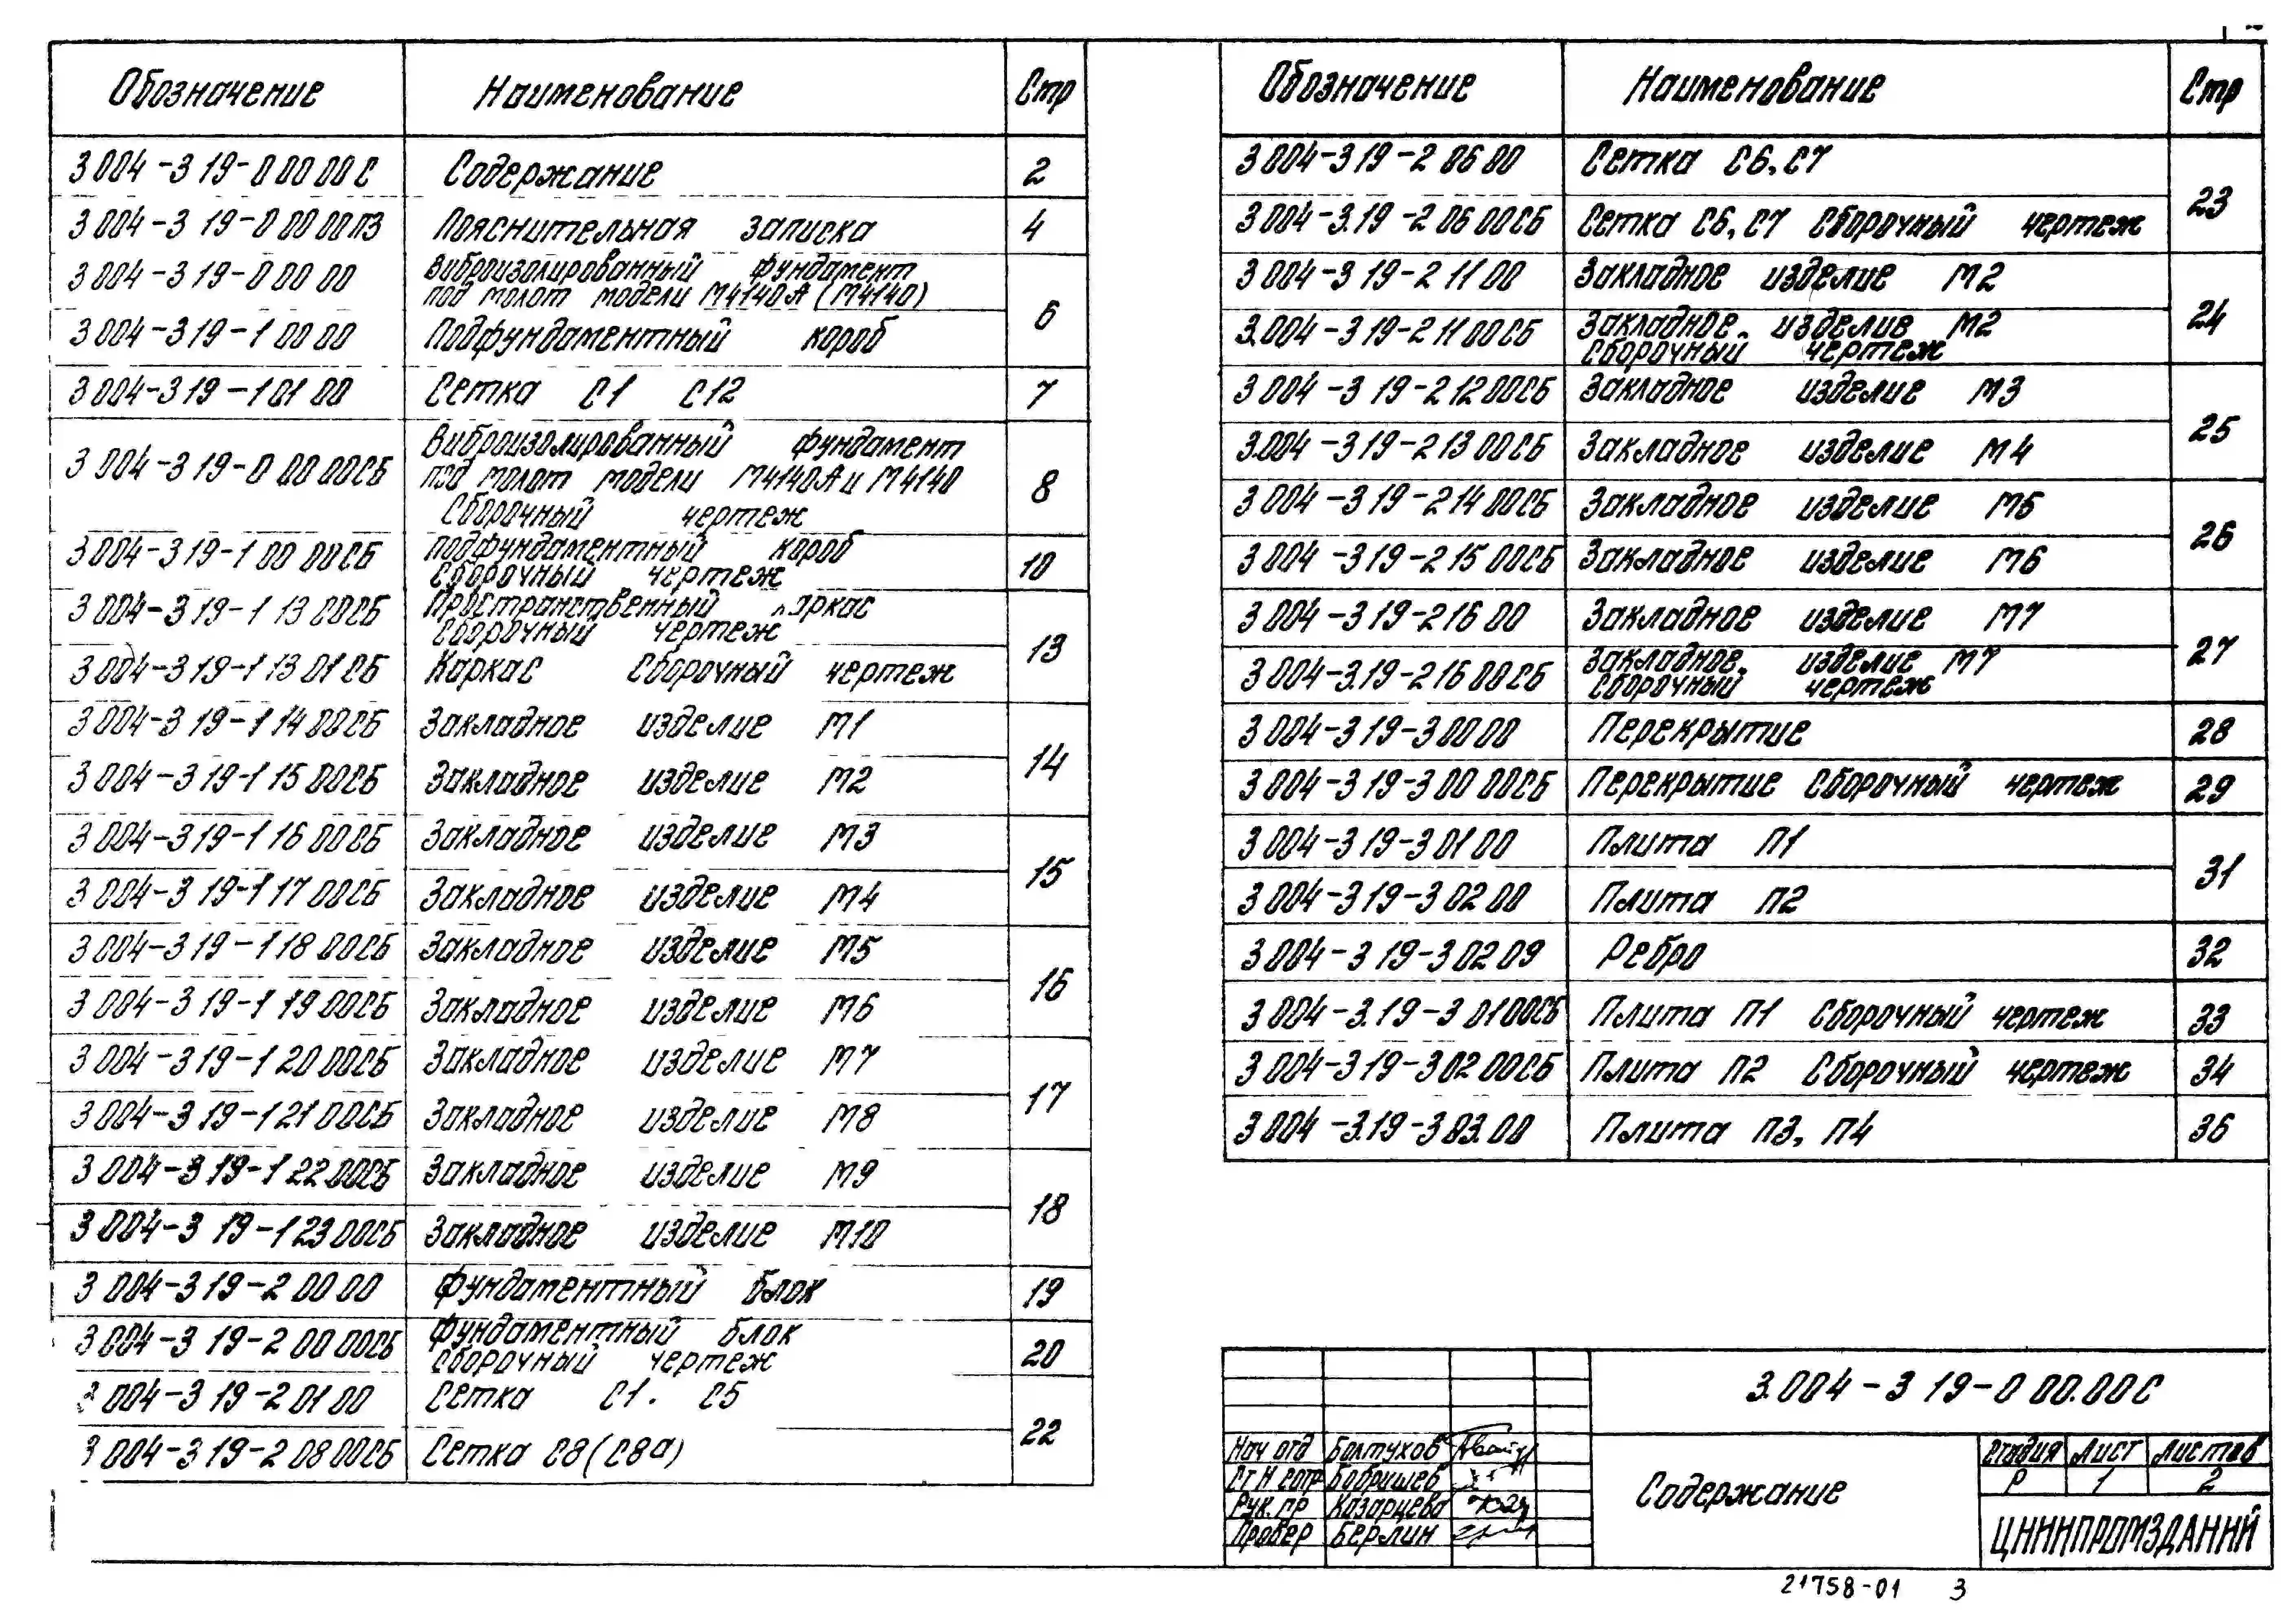 Обозначение Наименование Стр
3 004-3 19-0 00 00 С Содержание 2
3 004-3 19-0 00 00ПЗ Пояснительная записка 4
3 004-3 19-0 00 00 Виброизолированный фундамент
под молот модели М4140А (М4140) 6
3 004-3 19-1 00 00 Подфундаментный короб
3 004-3 19-1 01 00 Сетка С1 С12 7
Виброизолированный фундамент
3 004-3 19-0 00 00СБ под молот модели М4140А и М4140 8
Сборочный чертеж
3 004-3 19-1 00 00СБ Подфундаментный короб
Сборочный чертеж 10
3 004-3 19-1 13 00СБ Пространственный каркас
Сборочный чертеж 13
3 004-3 19-1 13 01СБ Каркас Сборочный чертеж
3 004-3 19-1 14 00СБ Закладное изделие М1 14
3 004-3 19-1 15 00СБ Закладное изделие М2
3 004-3 19-1 16 00СБ Закладное изделие М3 15
3 004-3 19-1 17 00СБ Закладное изделие М4
3 004-3 19-1 18 00СБ Закладное изделие М5 16
3 004-3 19-1 19 00СБ Закладное изделие М6
3 004-3 19-1 20 00СБ Закладное изделие М7 17
3 004-3 19-1 21 00СБ Закладное изделие М8
3 004-3 19-1 22 00СБ Закладное изделие М9 18
3 004-3 19-1 23 00СБ Закладное изделие М10
3 004-3 19-2 00 00 Фундаментный блок 19
3 004-3 19-2 00 00СБ Фундаментный блок
Сборочный чертеж 20
3 004-3 19-2 01 00 Сетка С1. С5 22
3 004-3 19-2 08 00СБ Сетка С8 (С8а)
Обозначение Наименование Стр
3 004-3 19-2 06 00 Сетка С6, С7 23
3 004-3.19-2 06 00СБ Сетка С6, С7 Сборочный чертеж
3 004-3 19-2 11 00 Закладное изделие М2 24
3.004-3 19-2 11 00СБ Закладное. изделие М2
Сборочный чертеж
3 004-3 19-2 12 00СБ Закладное изделие М3 25
3.004-3 19-2 13 00СБ Закладное изделие М4
3 004-3 19-2 14 00СБ Закладное изделие М5 26
3 004-3 19-2 15 00СБ Закладное изделие М6
3 004-3 19-2 16 00 Закладное изделие М7 27
3 004-3.19-2 16 00СБ Закладное. изделие М7
Сборочный чертеж
3 004-3 19-3 00 00 Перекрытие 28
3 004-3 19-3 00 00СБ Перекрытие Сборочный чертеж 29
3 004-3 19-3 01 00 Плита П1 31
3 004-3 19-3 02 00 Плита П2
3 004-3 19-3 02 09 Ребро 32
3 004-3.19-3 01 00СБ Плита П1 Сборочный чертеж 33
3 004-3 19-3 02 00СБ Плита П2 Сборочный чертеж 34
3 004-3.19-3 03.00 Плита П3, П4 36
3.004-3 19-0 00.00С
Нач отд Болтухов
Ст Н сотр Бобришев
Рук. пр Казарцева
Провер Берлин
Содержание
Стадия Лист Листов
Р 1 2
ЦНИИПРОМЗДАНИЙ
21758-01 3